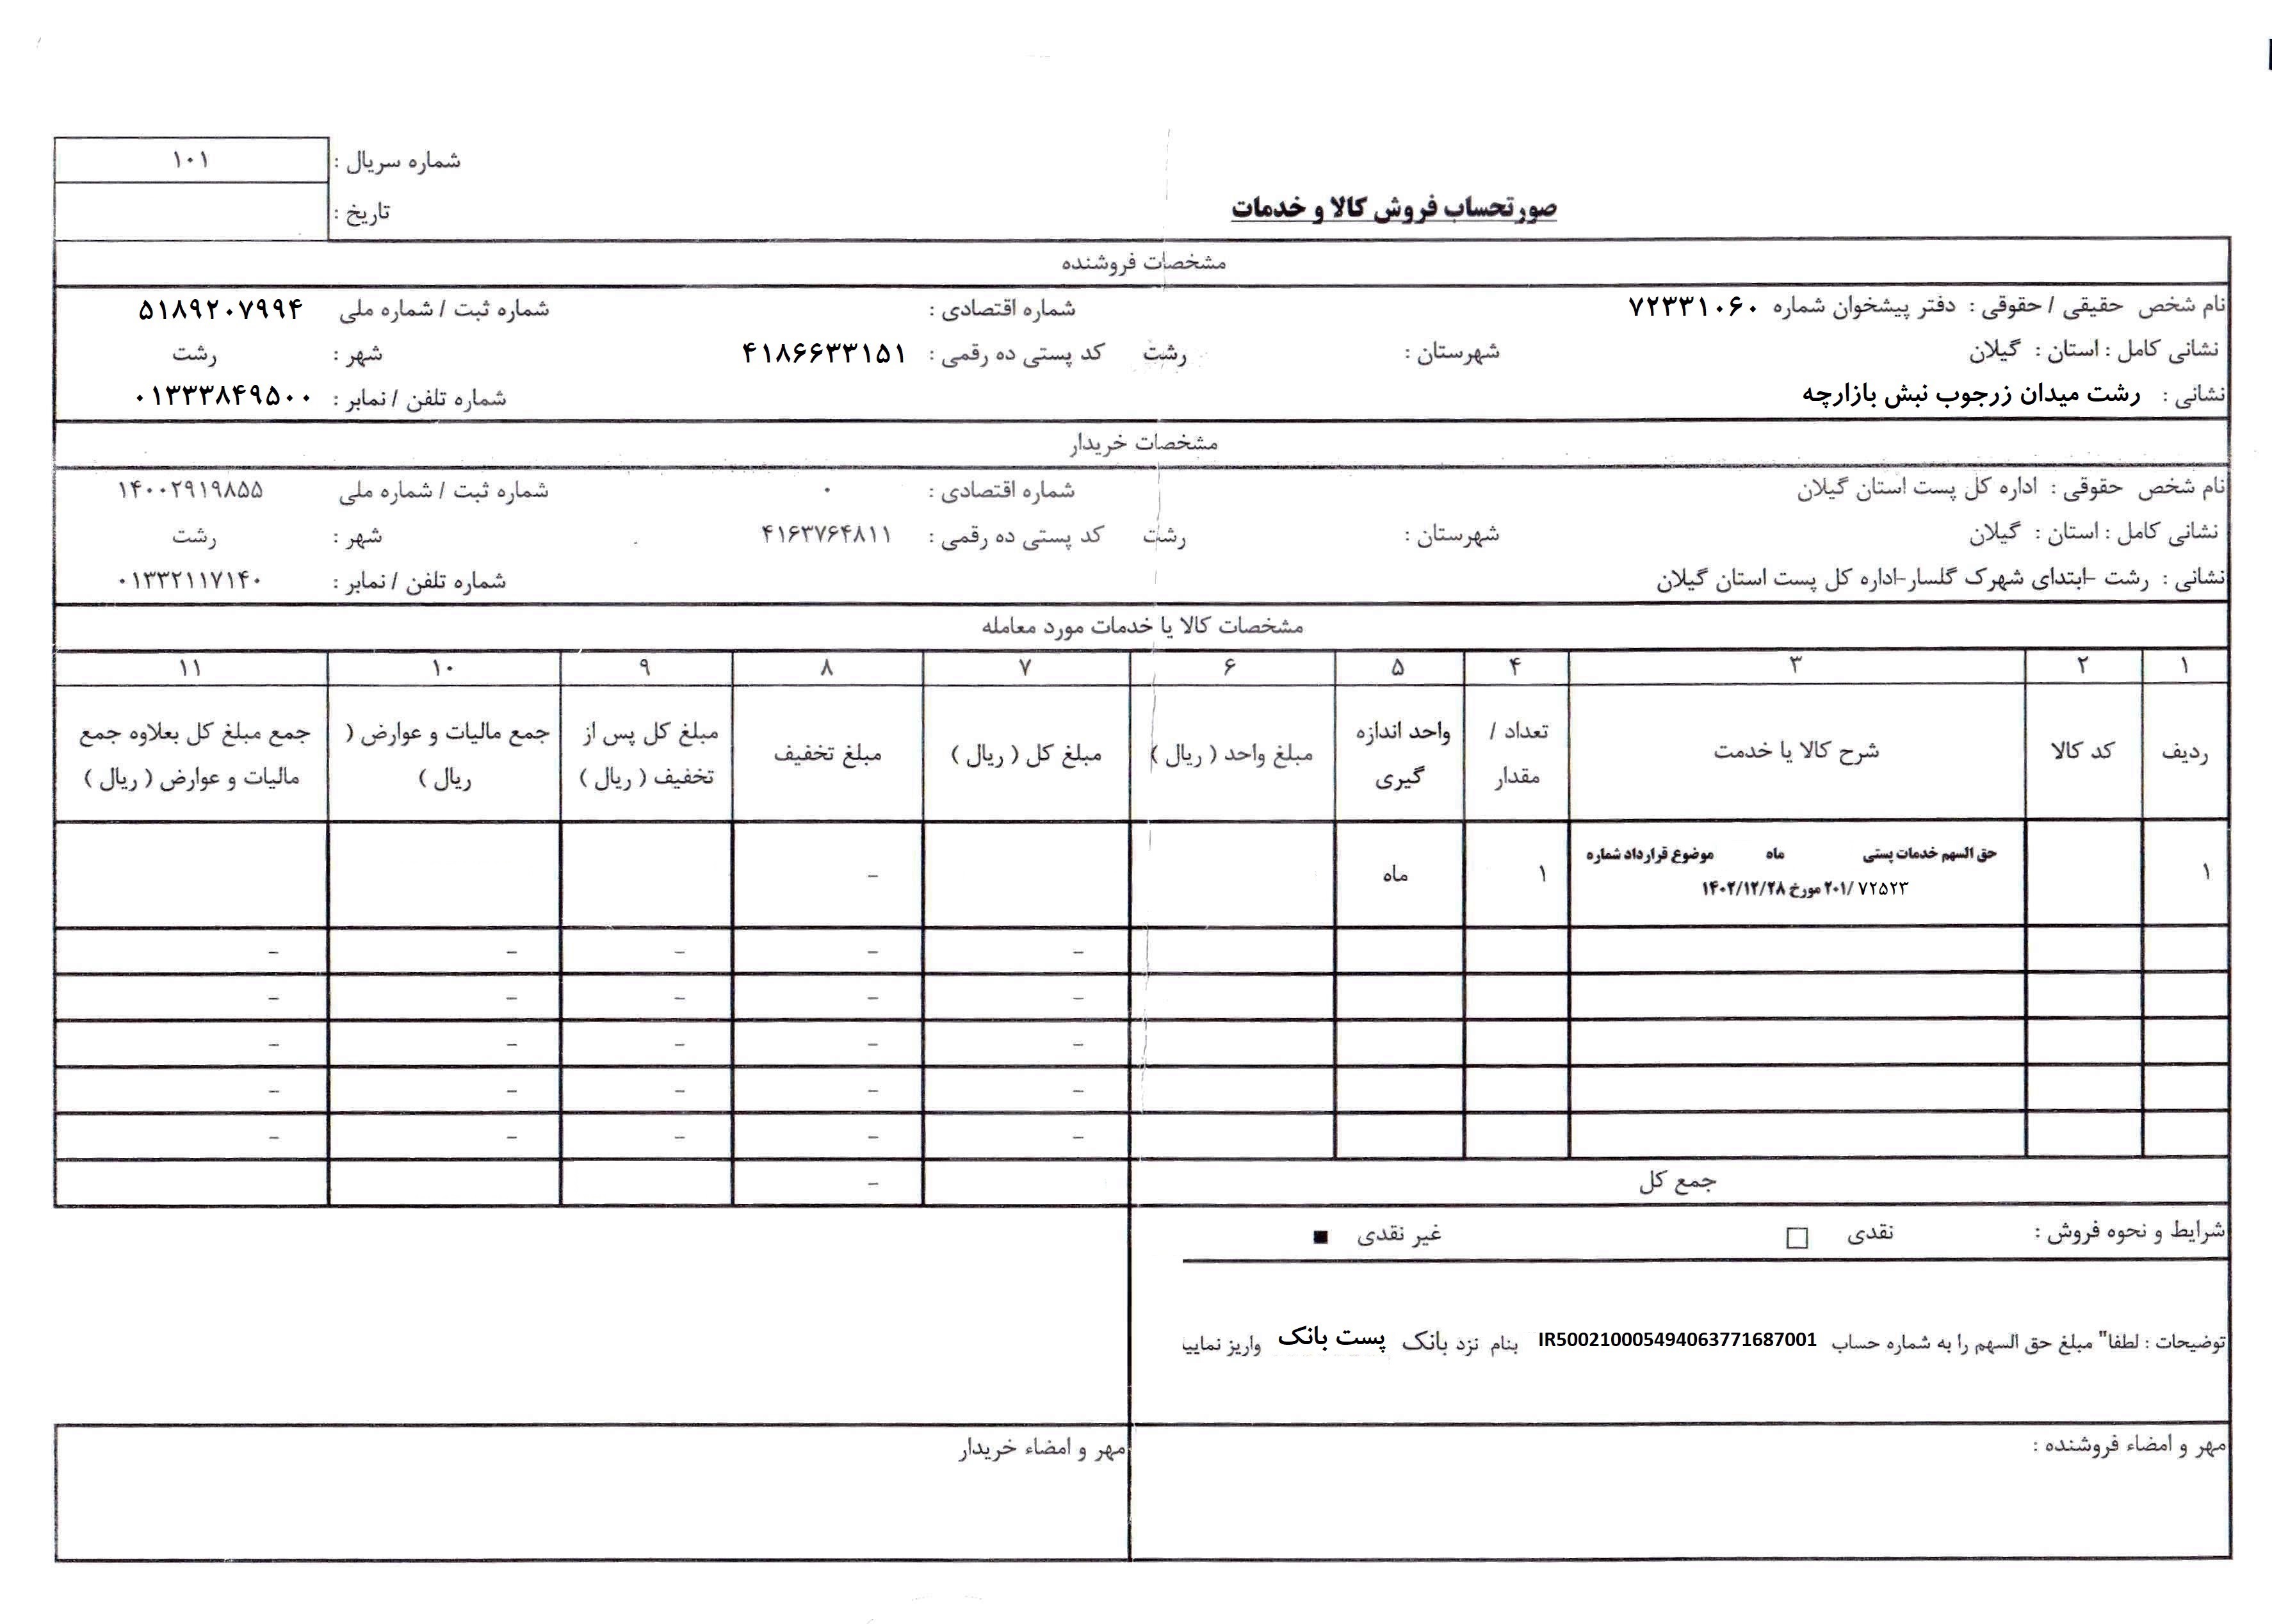 شماره سریال : ۱۰۱
صورتحساب فروش کالا و خدمات
تاریخ :
مشخصات فروشنده
نام شخص حقیقی / حقوقی : دفتر پیشخوان شماره ۷۲۳۳۱۰۶۰ شماره اقتصادی : شماره ثبت / شماره ملی ۵۱۸۹۲۰۷۹۹۴
نشانی کامل : استان : گیلان شهرستان : رشت کد پستی ده رقمی : ۴۱۸۶۶۳۳۱۵۱ شهر : رشت
نشانی : رشت میدان زرجوب نبش بازارچه شماره تلفن / نمابر : ۰۱۳۳۳۸۴۹۵۰۰
مشخصات خریدار
نام شخص حقوقی : اداره کل پست استان گیلان شماره اقتصادی : ۰ شماره ثبت / شماره ملی ۱۴۰۰۲۹۱۹۸۵۵
نشانی کامل : استان : گیلان شهرستان : رشت کد پستی ده رقمی : ۴۱۶۳۷۶۴۸۱۱ شهر : رشت
نشانی : رشت -ابتدای شهرک گلسار-اداره کل پست استان گیلان شماره تلفن / نمابر : ۰۱۳۳۲۱۱۷۱۴۰
مشخصات کالا یا خدمات مورد معامله
۱ ۲ ۳ ۴ ۵ ۶ ۷ ۸ ۹ ۱۰ ۱۱
ردیف کد کالا شرح کالا یا خدمت تعداد / مقدار واحد اندازه گیری مبلغ واحد ( ریال ) مبلغ کل ( ریال ) مبلغ تخفیف مبلغ کل پس از تخفیف ( ریال ) جمع مالیات و عوارض ( ریال ) جمع مبلغ کل بعلاوه جمع مالیات و عوارض ( ریال )
۱ حق السهم خدمات پستی ماه موضوع قرارداد شماره ۷۲۵۲۳ /۲۰۱ مورخ ۱۴۰۲/۱۲/۲۸ ۱ ماه -
- - - - -
- - - - -
- - - - -
- - - - -
- - - - -
جمع کل -
شرایط و نحوه فروش : نقدی □ غیر نقدی ■
توضیحات : لطفا" مبلغ حق السهم را به شماره حساب IR500210005494063771687001 بنام نزد بانک پست بانک واریز نمایی
مهر و امضاء فروشنده : مهر و امضاء خریدار